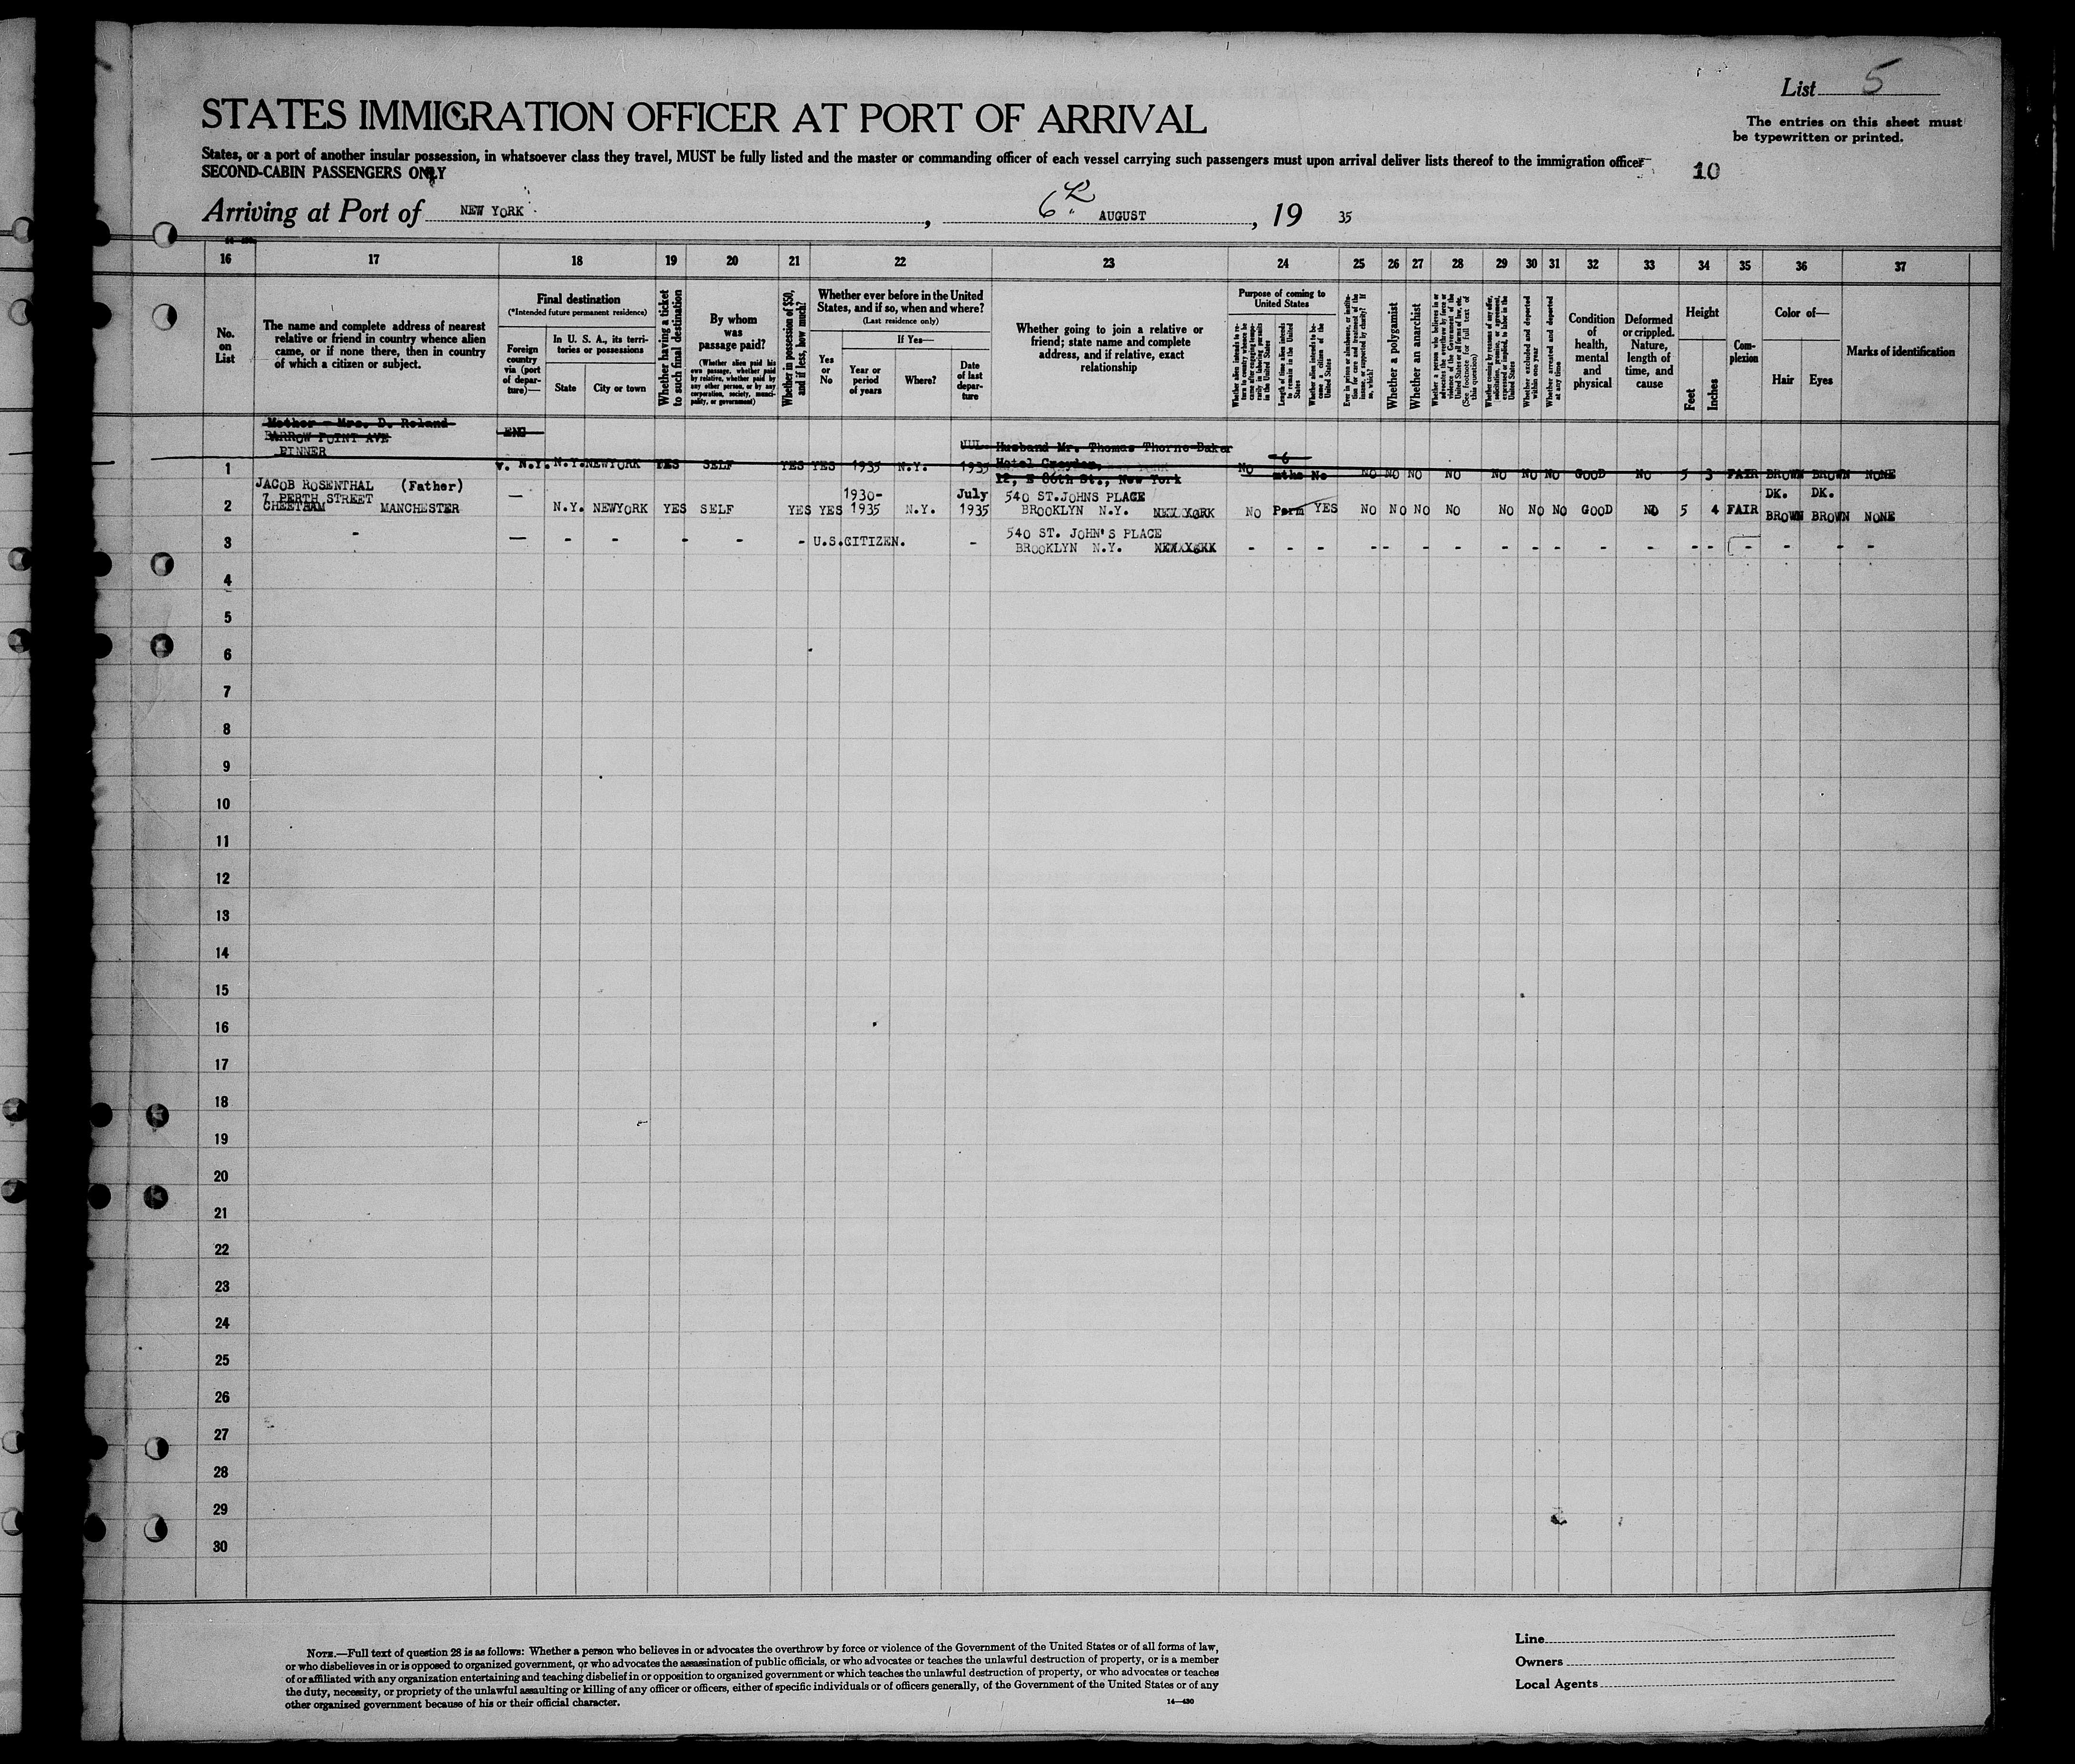 List 5
STATES IMMIGRATION OFFICER AT PORT OF ARRIVAL
The entries on this sheet must
be typewritten or printed.
States, or a port of another insular possession, in whatsoever class they travel, MUST be fully listed and the master or commanding officer of each vessel carrying such passengers must upon arrival deliver lists thereof to the immigration officer
SECOND-CABIN PASSENGERS ONLY
10
Arriving at Port of NEW YORK, 6 AUGUST, 19 35
16 17 18 19 20 21 22 23 24 25 26 27 28 29 30 31 32 33 34 35 36 37
No. on List
The name and complete address of nearest
relative or friend in country whence alien
came, or if none there, then in country
of which a citizen or subject.
Final destination
(*Intended future permanent residence)
Foreign country via (port of departure)—
In U. S. A., its territories or possessions
State
City or town
Whether having a ticket to such final destination
By whom was passage paid?
(Whether alien paid his own passage, whether paid by relative, whether paid by any other person, or by any corporation, society, municipality, or government)
Whether in possession of $50, and if less, how much?
Whether ever before in the United
States, and if so, when and where?
(Last residence only)
Yes or No
If Yes—
Year or period of years
Where?
Date of last departure
Whether going to join a relative or
friend; state name and complete
address, and if relative, exact
relationship
Purpose of coming to United States
Whether alien intends to return to country whence he came after engaging temporarily in laboring pursuits in the United States
Length of time alien intends to remain in the United States
Whether alien intends to become a citizen of the United States
Ever in prison or almshouse, or institution for care and treatment of the insane, or supported by charity? If so, which?
Whether a polygamist
Whether an anarchist
Whether a person who believes in or advocates the overthrow by force or violence of the Government of the United States or all forms of law, etc. (See footnote for full text of this question)
Whether coming by reason of any offer, solicitation, promise, or agreement, expressed or implied, to labor in the United States
Whether excluded and deported within one year
Whether arrested and deported at any time
Condition of health, mental and physical
Deformed or crippled. Nature, length of time, and cause
Height
Feet
Inches
Complexion
Color of—
Hair
Eyes
Marks of identification
Mother - Mrs. D. Roland
BARROW POINT AVE
PINNER
ENG
1 v. N.Y. N.Y. NEWYORK YES SELF YES YES 1935 N.Y. JUL 1935 Husband Mr. Thomas Thorne-Baker
Hotel Croydon,
12, E 86th St., New York
No 6 mths No NO NO NO NO NO NO NO GOOD NO 5 3 FAIR BROWN BROWN NONE
JACOB ROSENTHAL (Father)
7 PERTH STREET
CHEETHAM MANCHESTER
2 — N.Y. NEWYORK YES SELF YES YES 1930-1935 N.Y. July 1935 540 ST.JOHNS PLACE
BROOKLYN N.Y. NEW YORK
NO Perm YES NO NO NO NO NO NO NO GOOD NO 5 4 FAIR DK. BROWN DK. BROWN NONE
3 - — - - - - - U.S.CITIZEN. - 540 ST. JOHN'S PLACE
BROOKLYN N.Y. NEW YORK
- - - - - - - - - - - - - - - - - -
4
5
6
7
8
9
10
11
12
13
14
15
16
17
18
19
20
21
22
23
24
25
26
27
28
29
30
NOTE.—Full text of question 28 is as follows: Whether a person who believes in or advocates the overthrow by force or violence of the Government of the United States or of all forms of law,
or who disbelieves in or is opposed to organized government, or who advocates the assassination of public officials, or who advocates or teaches the unlawful destruction of property, or is a member
of or affiliated with any organization entertaining and teaching disbelief in or opposition to organized government or which teaches the unlawful destruction of property, or who advocates or teaches
the duty, necessity, or propriety of the unlawful assaulting or killing of any officer or officers, either of specific individuals or of officers generally, of the Government of the United States or of any
other organized government because of his or their official character.
14—430
Line
Owners
Local Agents